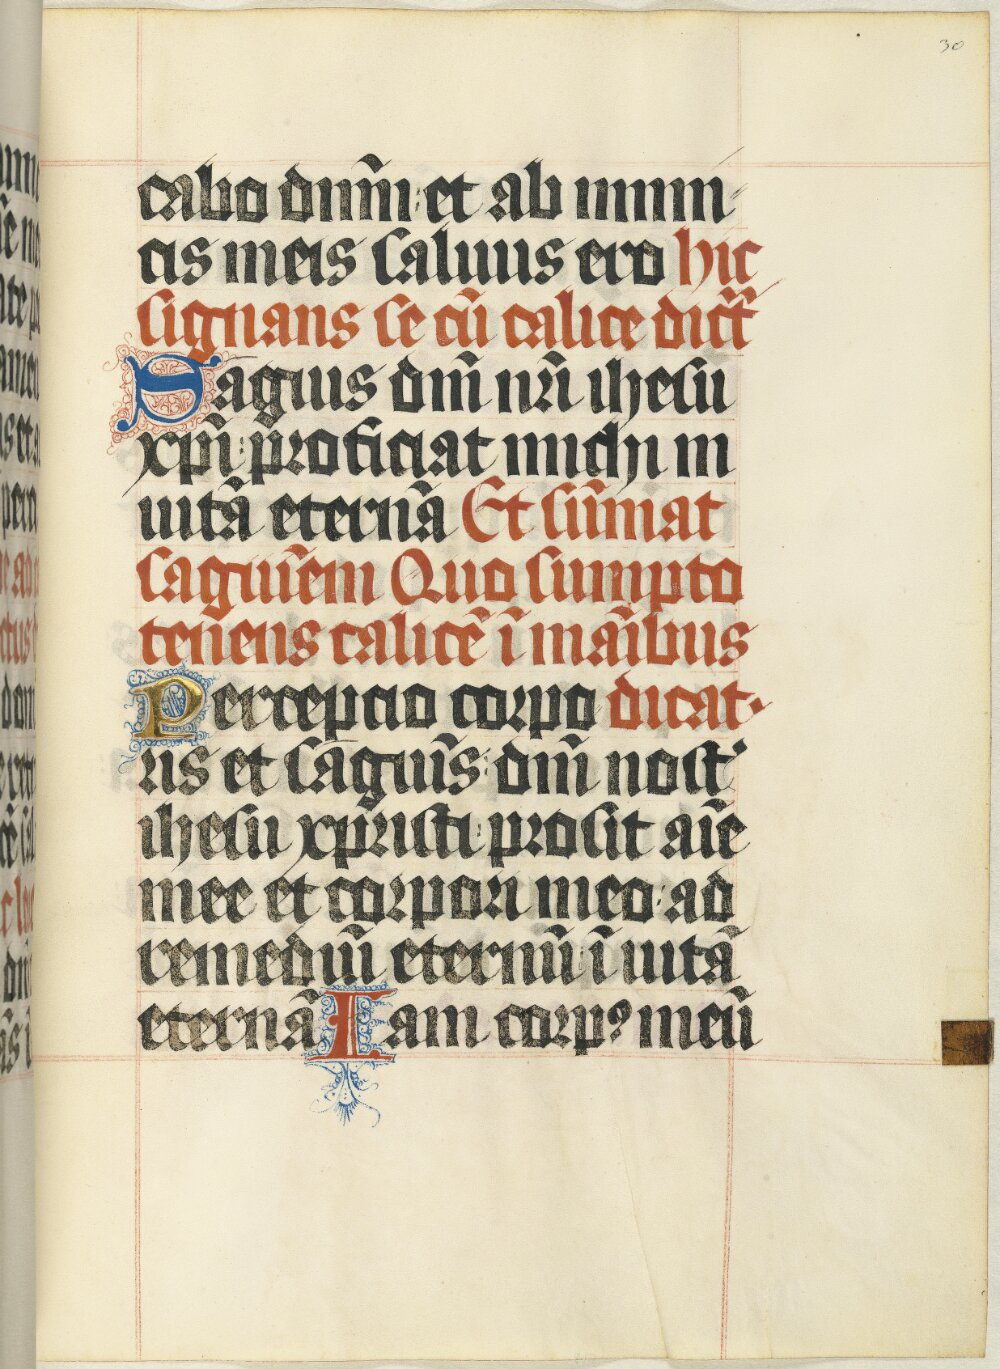 30
cabo dnm̃: et ab inimi-
cis meis saluus ero hic
signans se cũ calice dict̃
Sagiuis dm̃ nrĩ ihesu
xpĩ: proficiat michi in
uitã eternã Et sum̃at
saguiẽm Quo sumpto
tenens calicẽ ĩ manĩbus
Percepcio corpo dicat.
ris et saguis̃: dm̃ nost̃
ihesu xp̃risti: prosit aĩe
mee et corpori meo: ad
remediũ eternũ ĩ uitã
eternã Iam corpꝰ meũ